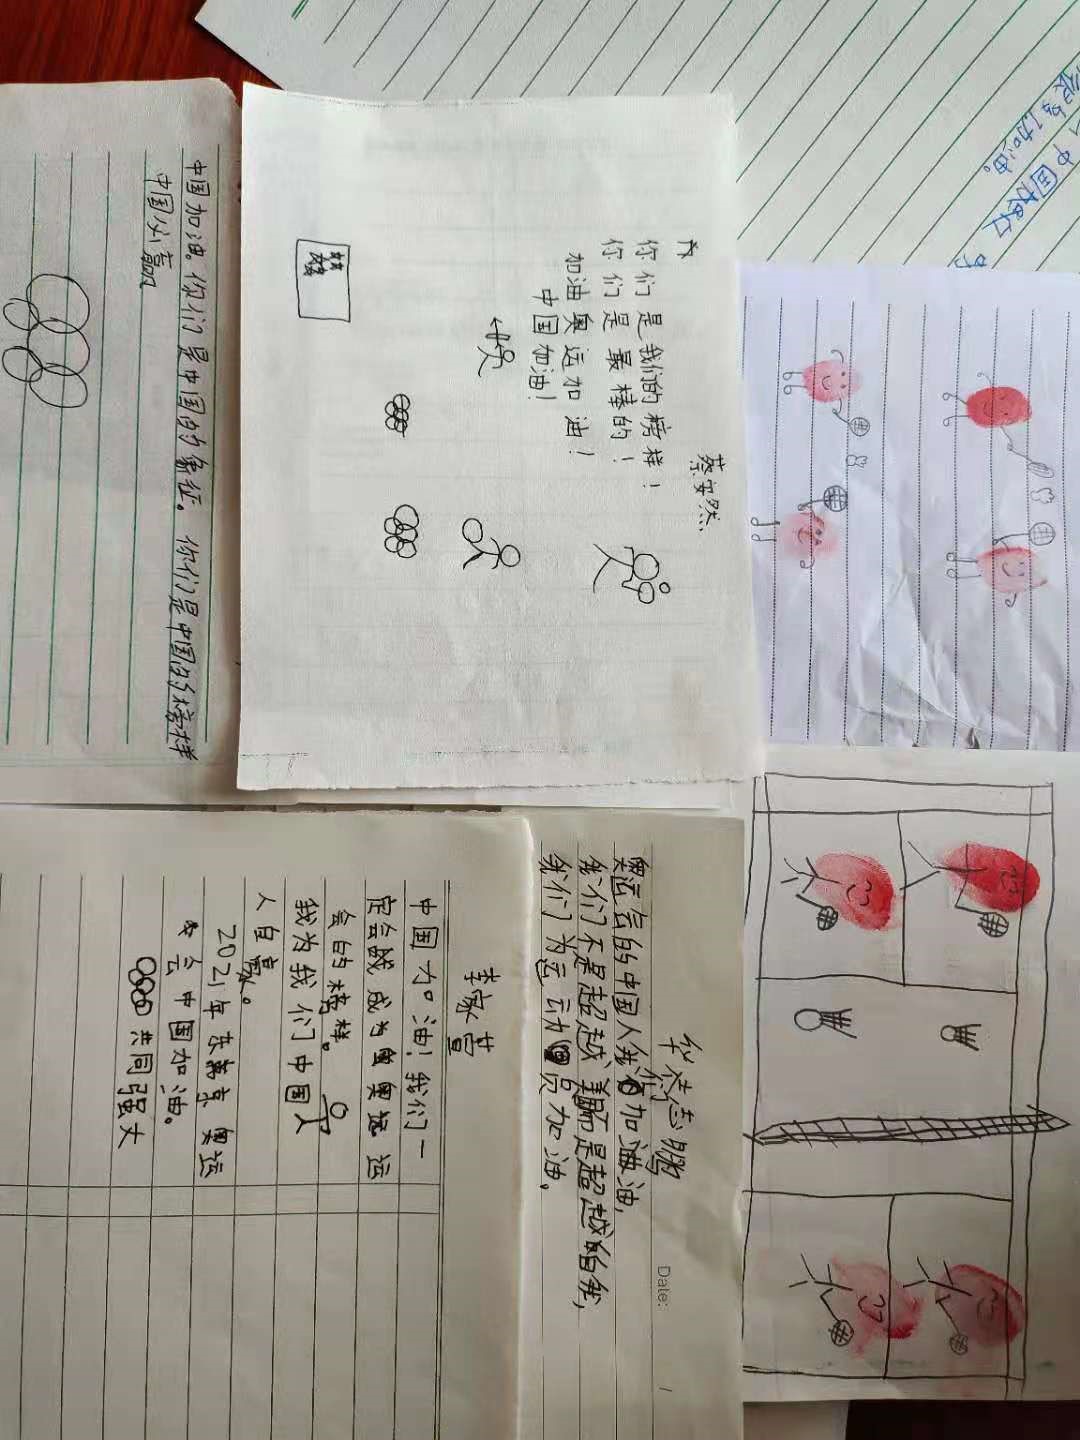 中国加油。你们是中国的象征。你们是中国的榜样
中国必赢
蔡安然
你们是我们的榜样！
你们是最棒的！
加油奥运加油！
中国加油！
中国
加油。
李家
中国加油！我们一
定会 成为奥运
会的榜样。
我为我们中国人
人自豪。
2021年东京奥运
会中国加油。
共同强大
Date:
志鹏
奥运会的中国人我们加油油，
我们不是超越 而是超越自我，
我们为运动员加油。